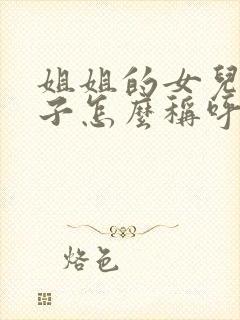 姐姐的女兒
子怎麼稱呼
烙色